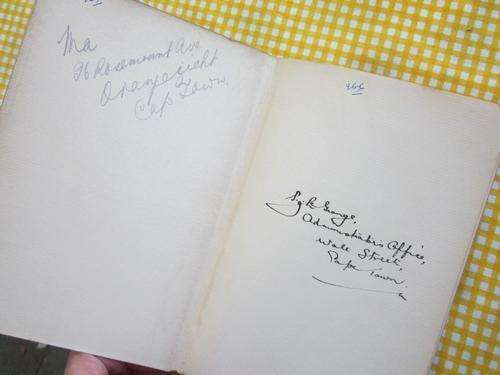 Ma
26 Rosemount Ave
Oranjezicht
Cap Town.
366
George,
Administrator's Office,
Wale Street,
Cape Town.